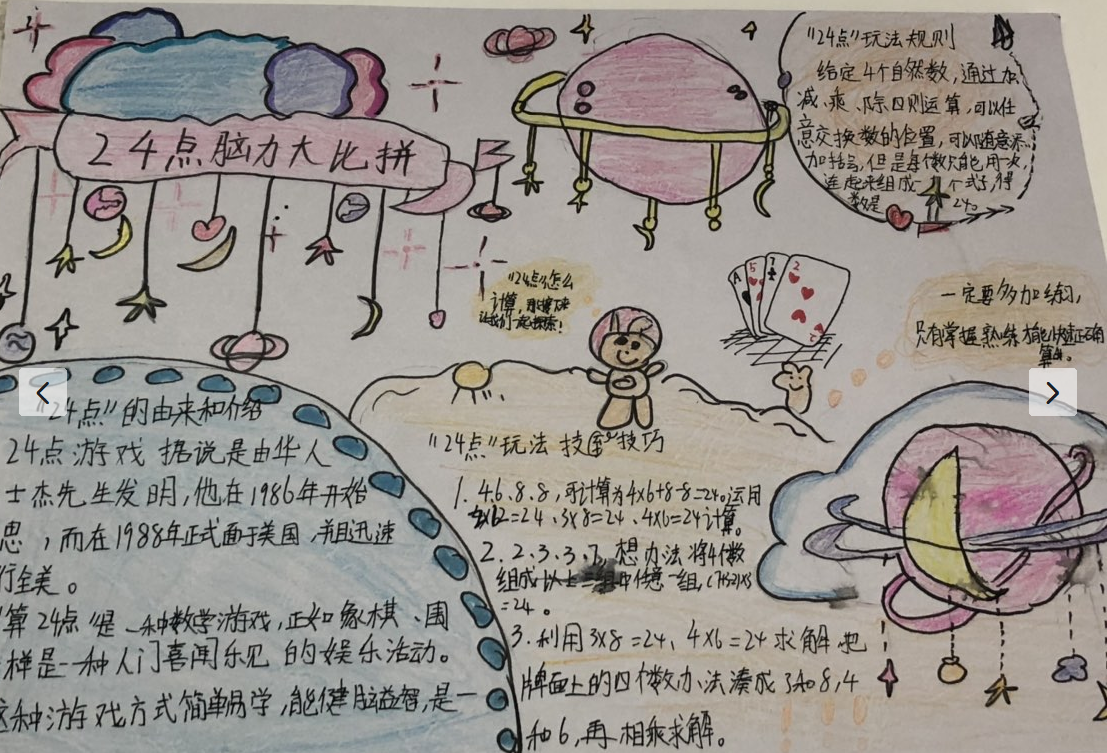 24点脑力大比拼
"24点"玩法规则
给定4个自然数,通过加
减、乘、除四则运算,可以任
意交换数的位置,可以随意添
加括号,但是每个数只能用一次,
连起来组成一个式子,得
数是24。
"24点"怎么
计算,
让我们一起探索!
A 5 7 2
一定要多加练习,
只有掌握熟练才能快速正确
算出。
"24点"的由来和介绍
24点游戏 据说是由华人
士杰先生发明,他在1986年开始
思,而在1988年正式面于美国,并且迅速
行全美。
算24点"是一种数学游戏,正如象棋、围
样是一种人门喜闻乐见的娱乐活动。
这种游戏方式简单易学,能健脑益智,是一
"24点"玩法 技巧
1. 4.6.8.8,可计算为4x6+8-8=24。运用
2x12=24、3x8=24、4x6=24计算。
2. 2.3.3.7,想办法将4个数
组成以上 一组,
=24。
3. 利用3x8=24、4x6=24求解把
牌面上的四个数办法凑成3和8,4
和6,再相乘求解。